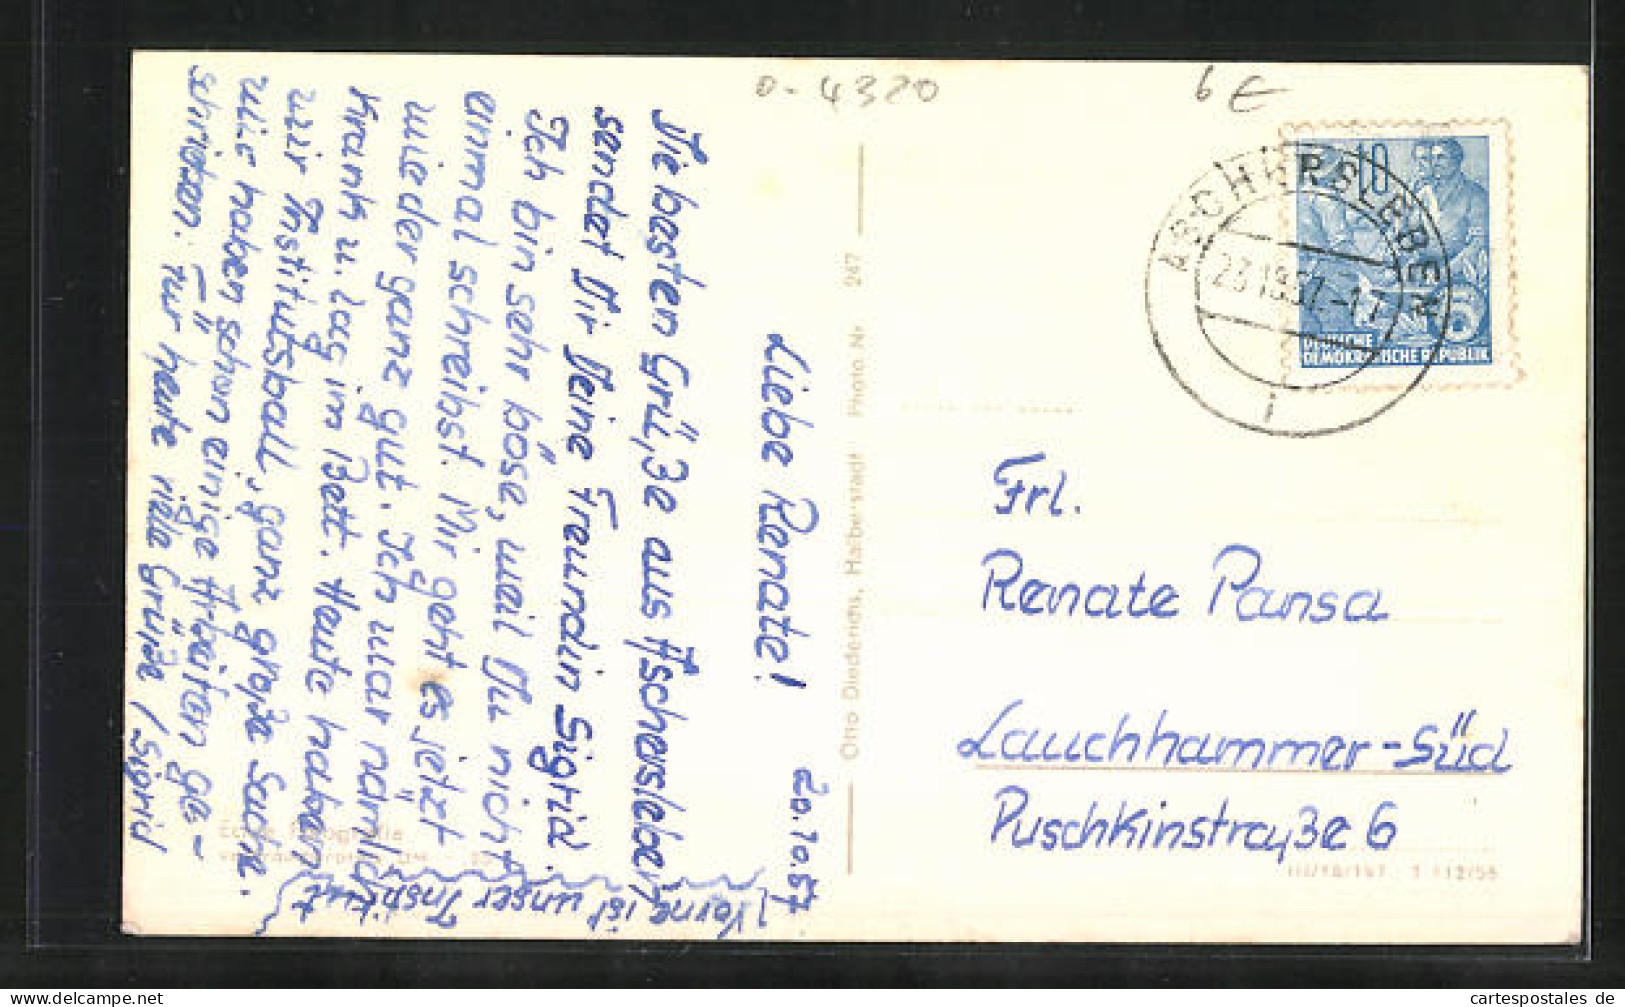 o-4320
6 €
20.10.57
Liebe Renate!
Die besten Grüße aus Aschersleben
sendet Dir Deine Freundin Sigrid.
Ich bin sehr böse, weil Du nicht
einmal schreibst. Mir geht es jetzt
wieder ganz gut. Ich war nämlich
krank u. lag im Bett. Heute haben
wir Institutsball, ganz große Sache.
Wir haben schon einige Arbeiten ge-
schrieben. Für heute viele Grüße / Sigrid
Vorne ist unser Institut
Otto Diederichs, Halberstadt Photo Nr. 247
Echte Fotografie
ASCHERSLEBEN
10
DEUTSCHE
DEMOKRATISCHE REPUBLIK
i
Frl.
Renate Pansa
Lauchhammer-Süd
Puschkinstraße 6
cartespostales de